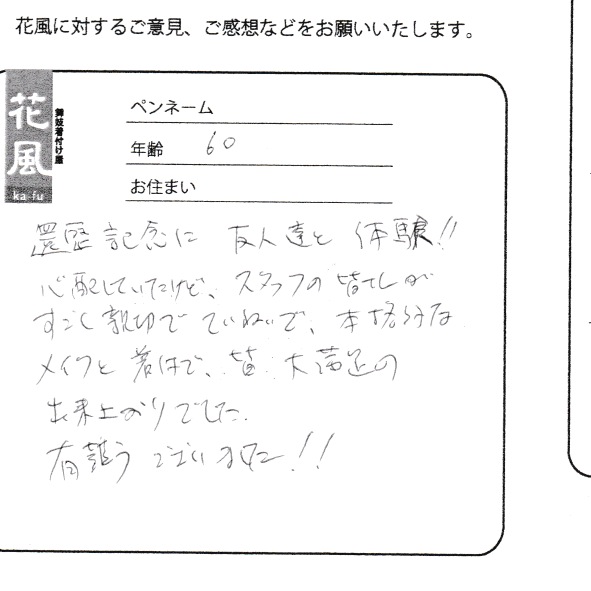 花風に対するご意見、ご感想などをお願いいたします。
花風
舞妓着付け屋
ka fu
ペンネーム
年齢 60
お住まい
還暦記念に 友人達と 体験!!
心配していたけど、スタッフの皆さんが
すごく親切で ていねいで、本格的な
メイクと 着付で、皆 大満足の
出来上がりでした。
有難う ございました!!